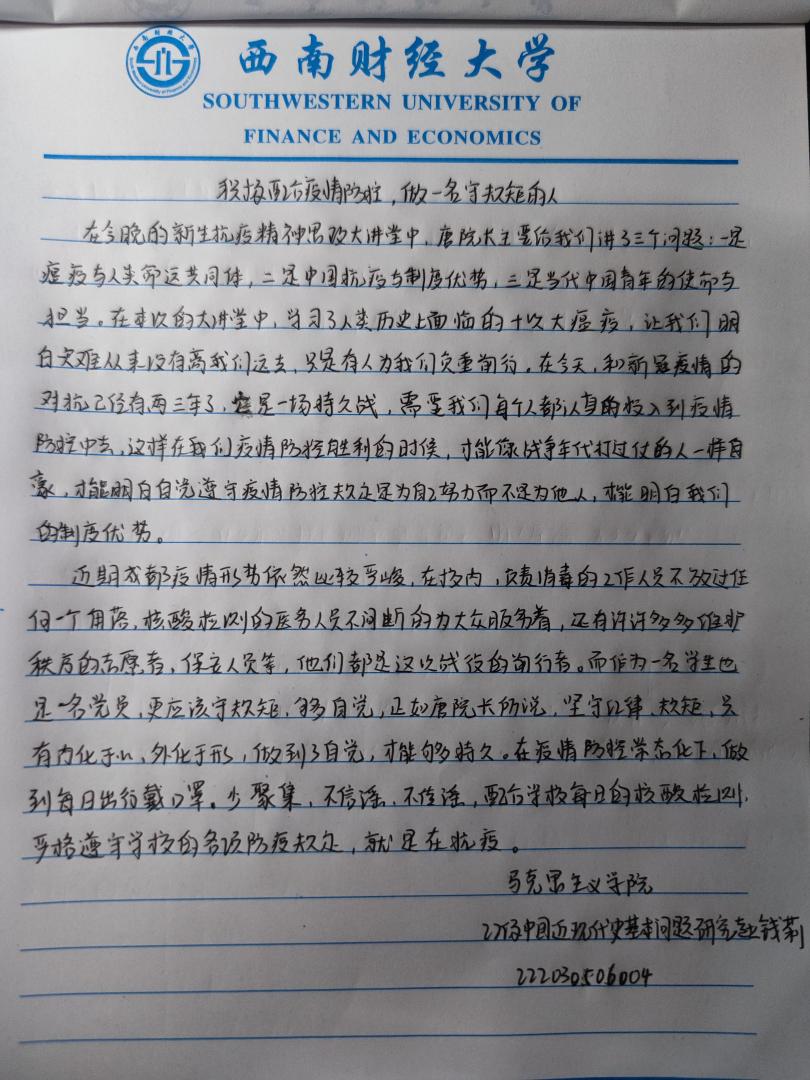 西南财经大学
SOUTHWESTERN UNIVERSITY OF
FINANCE AND ECONOMICS
积极配合疫情防控，做一名守规矩的人
在今晚的新生抗疫精神思政大讲堂中，唐院长主要给我们讲了三个问题：一是
瘟疫与人类命运共同体，二是中国抗疫与制度优势，三是当代中国青年的使命与
担当。在本次的大讲堂中，学习了人类历史上面临的十次大瘟疫，让我们明
白灾难从来没有离我们远去，只是有人为我们负重前行。在今天，和新冠疫情的
对抗已经有两三年了，这是一场持久战，需要我们每个人都认真的投入到疫情
防控中去，这样在我们疫情防控胜利的时候，才能像战争年代打过仗的人一样自
豪，才能明白自觉遵守疫情防控规定是为自己努力而不是为他人，才能明白我们
的制度优势。
近期成都疫情形势依然比较严峻，在校内，负责消毒的工作人员不放过任
何一个角落，核酸检测的医务人员不间断的为大众服务着，还有许许多多维护
秩序的志愿者，保安人员等，他们都是这次战役的前行者。而作为一名学生也
是一名党员，更应该守规矩，够自觉，正如唐院长所说，坚守纪律、规矩，只
有内化于心，外化于形，做到了自觉，才能够持久。在疫情防控常态化下，做
到每日出行戴口罩。少聚集，不信谣，不传谣，配合学校每日的核酸检测，
严格遵守学校的各项防疫规定，就是在抗疫。
马克思主义学院
22级中国近现代史基本问题研究专业钱莉
222030506004